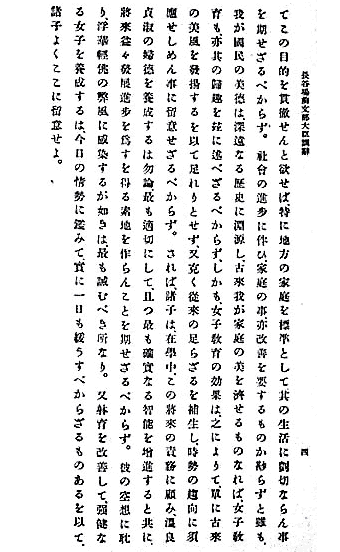 長谷場前文部大臣訓辭
四
てこの目的を貫徹せんと欲せば特に地方の家庭を標準として其の生活に剴切ならん事
を期せざるべからず。社會の進步に伴ひ家庭の事亦改善を要するもの尠からずと雖も、
我が國民の美德は、深遠なる歷史に淵源し、古來我が家庭の美を濟せるものなれば、女子敎
育も亦其の歸趣を玆に述べざるべからず、しかも、女子敎育の効果は、之によりて、單に古來
の美風を發揚するを以て足れりとせず、又克く從來の足らざるを補生し、時勢の趨向に須
應せしめん事に留意せざるべからず。されば、諸子は、在學中、この將來の責務に顧み、溫良
貞淑の婦德を養成するは勿論最も適切にして、且つ最も確實なる智能を增進すると共に、
將來益々發展進步を爲すを得る素地を作らんことを期せざるべからず。彼の空想に耽
り、浮華輕佻の弊風に感染するが如きは最も誡むべき所なり。又躰育を改善して、强健な
る女子を養成するは、今日の情勢に鑑みて實に一日も緩うすべからざるものあるを以て、
諸子よくここに留意せよ。